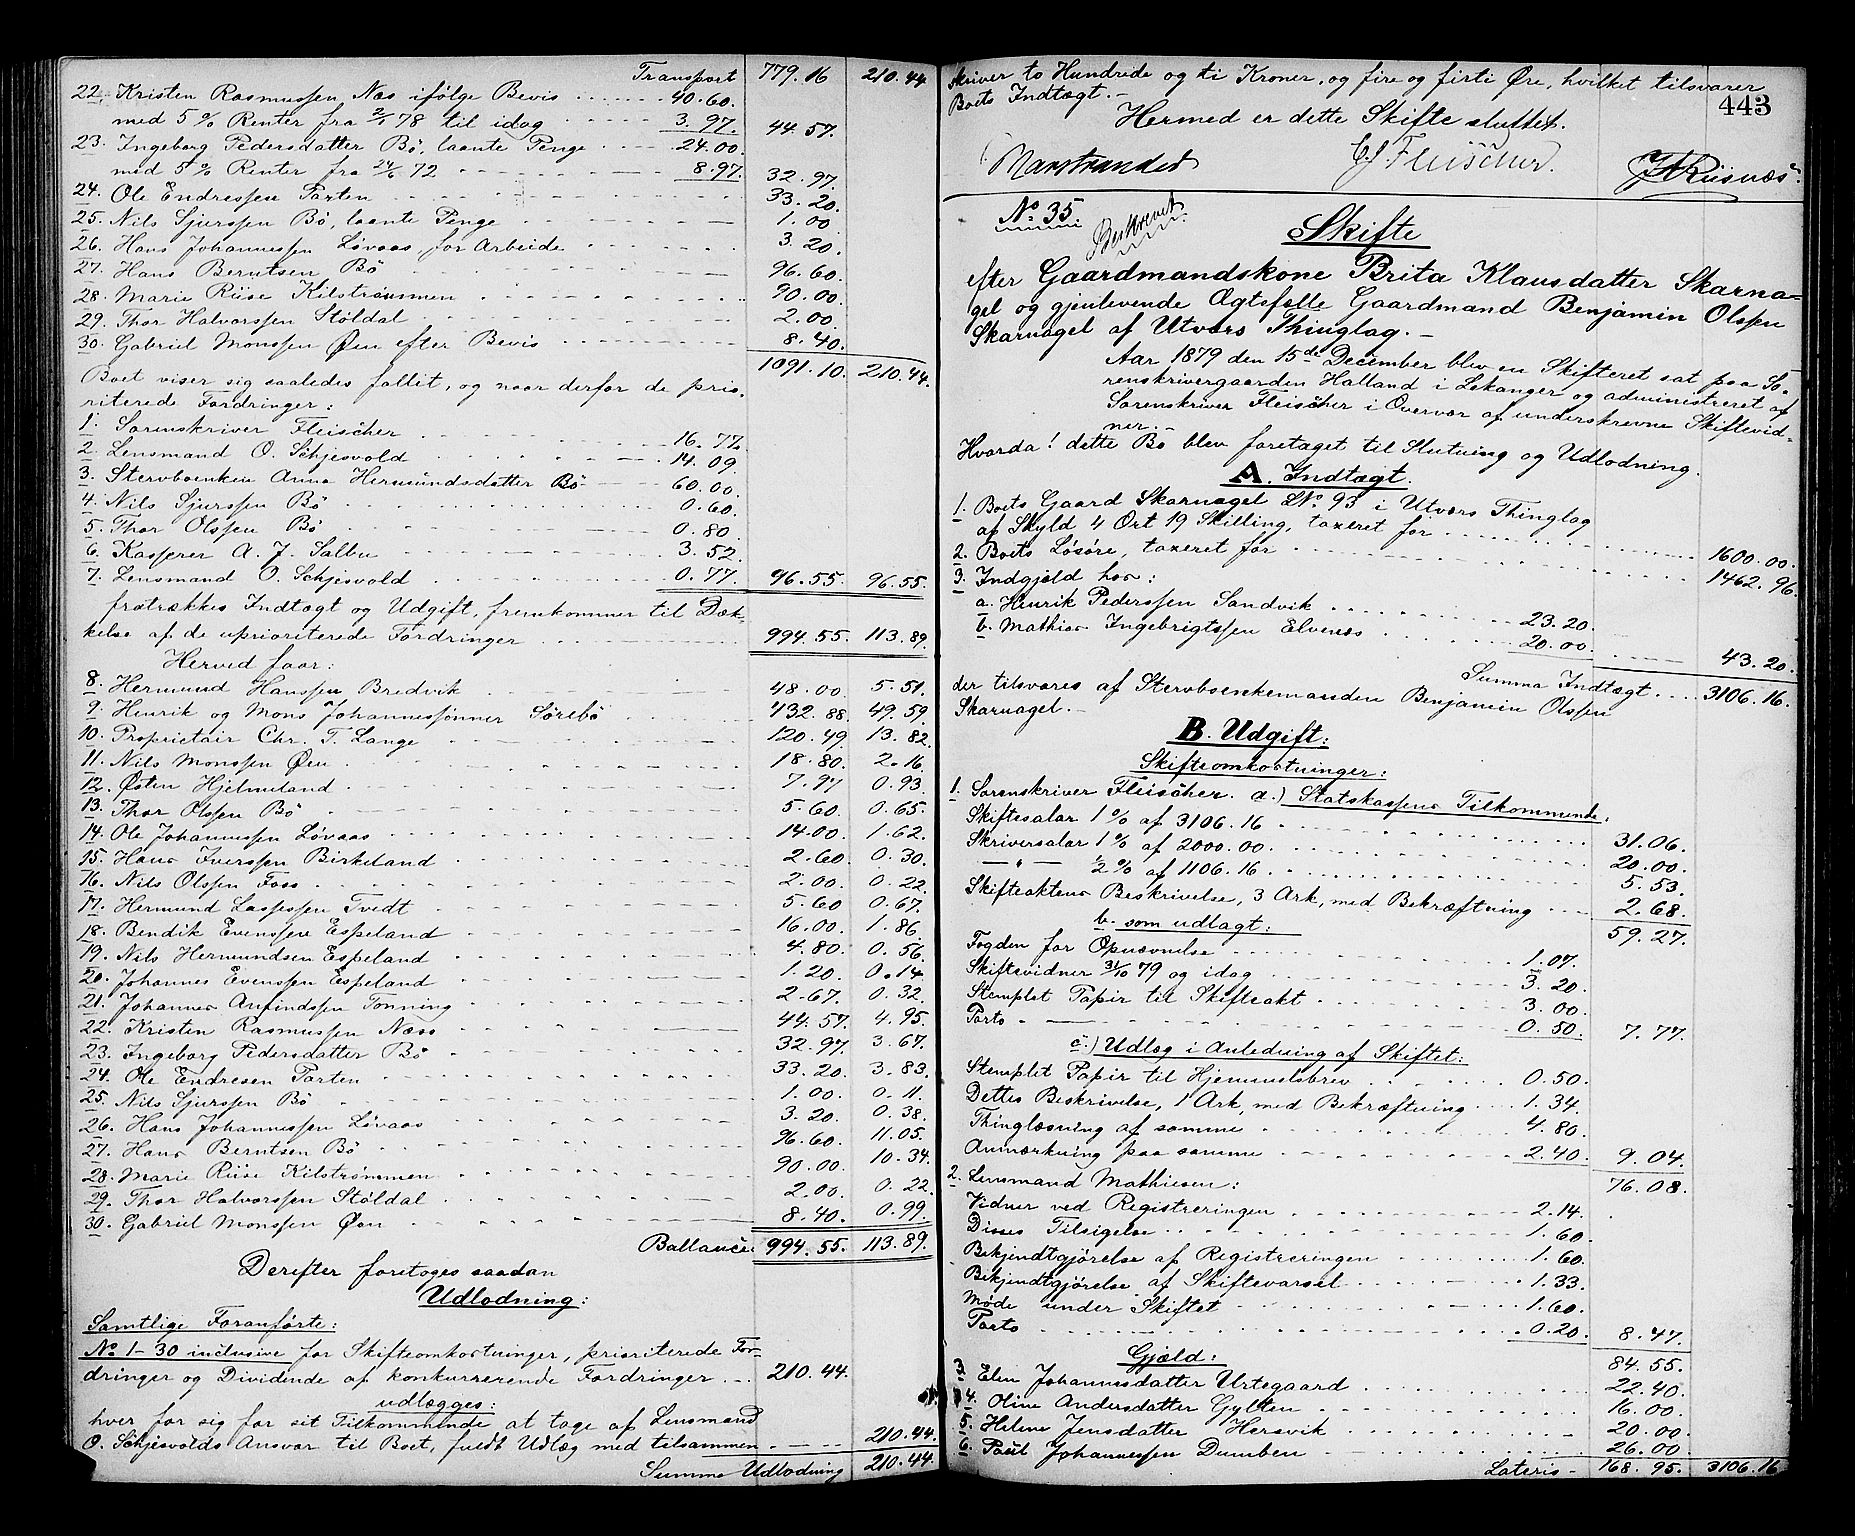 Transport 779.16 210.44
22. Kristen Rasmussen Næs ifølge Bevis 40.60.
med 5% Renter fra 2/1 78 til idag 3.97. 44.57.
23. Ingeborg Pedersdatter Bö, laante Penge 24.00.
med 5% Renter fra 24/6 72 8.97. 32.97.
24. Ole Endressen Tarten 33.20.
25. Nils Sjurssen Bö, laante Penge 1.00
26. Hans Johannessen Lövaas, for Arbeide 3.20.
27. Hans Berntsen Bö 96.60.
28. Marie Riise Kilströmmen 90.00.
29. Thor Halvorssen Stöldal 2.00.
30. Gabriel Monssen Øen efter Bevis 8.40.
1091.10. 210.44.
Boet viser sig saaledes fallit, og naar derfor de prio-
riterede Fordringer:
1. Sorenskriver Fleischer 16.77.
2. Lensmand O. Schjesvold 14.09.
3. Stervboenken Anna Hermundsdatter Bö 60.00.
4. Nils Sjurssen Bö 0.60.
5. Thor Olssen Bö 0.80.
6. Kasserer A. J. Salbu 3.52.
7. Lensmand O. Schjesvold 0.77. 96.55. 96.55.
fratrækkes Indtægt og Udgift, fremkommer til Dæk-
kelse af de uprioriterede Fordringer 994.55. 113.89.
Herved faar:
8. Hermund Hanssen Bredvik 48.00. 5.51.
9. Henrik og Mons Johannessönner Sörebö 432.88. 49.59.
10. Proprietair Chr. T. Lange 120.49. 13.82.
11. Nils Monssen Øen 18.80. 2.16.
12. Østen Hjelmeland 7.97 0.93.
13. Thor Olssen Bö 5.60. 0.65.
14. Ole Johannessen Lövaas 14.00. 1.62.
15. Hans Iverssen Birkeland 2.60. 0.30.
16. Nils Olssen Foss 2.00. 0.22.
17. Hermund Lassessen Tvedt 5.60 0.67.
18. Bendik Evenssen Espeland 16.00. 1.86.
19. Nils Hermundsen Espeland 4.80. 0.56.
20. Johannes Evenssen Espeland 1.20. 0.14
21. Johannes Anfindssen Tonning 2.67. 0.32.
22. Kristen Rasmussen Næss 44.57. 4.95.
23. Ingeborg Pedersdatter Bö 32.97. 3.67.
24. Ole Endresen Tarten 33.20. 3.83.
25. Nils Sjurssen Bö 1.00. 0.11.
26. Hans Johannessen Lövaas 3.20. 0.38.
27. Hans Berntsen Bö 96.60. 11.05.
28. Marie Riise Kilströmmen 90.00. 10.34.
29. Thor Halvorssen Stöldal 2.00. 0.22.
30. Gabriel Monssen Øen 8.40. 0.99.
Ballance: 994.55. 113.89.
Derefter foretoges saadan
Udlodning:
Samtlige Foranførte:
No 1-30 inclusive for Skifteomkostninger, prioriterede For-
dringer og Dividende af konkurrerende Fordringer 210.44.
udlægges:
hver for sig for sit Tilkommende at tage af Lensmand
O. Schjesvolds Ansvar til Boet, fuldt Udlæg med tilsammen 210.44.
Summa Udlodning 210.44.
skriver to Hundrede og ti Kroner, og fire og firti Øre, hvilket tilsvarer
Boets Indtægt.
443
Hermed er dette Skifte sluttet.
Marstrander Fleischer. Risnæs.
No 35. Beskrevet.
Skifte
efter Gaardmandskone Brita Klausdatter Skarna-
gel og gjenlevende Ægtefælle Gaardmand Benjamin Olssen
Skarnagel af Utvær Thinglag.
Aar 1879 den 15de December blev en Skifteret sat paa So-
renskrivergaarden Halland i Lekanger og administreret af
Sorenskriver Fleischer i Overvær af underskrevne Skiftevid-
ner.
Hvorda! dette Bo blev foretaget til Slutning og Udlodning.
A. Indtægt.
1. Boets Gaard Skarnagel LNo. 93 i Utvær Thinglag
af Skyld 4 Ort 19 Skilling, taxeret for 1600.00.
2. Boets Løsøre, taxeret for 1462.96.
3. Indgjæld hos:
a. Henrik Pederssen Sandvik 23.20.
b. Mathias Ingebrigtssen Elvenes 20.00. 43.20.
Summa Indtægt 3106.16.
der tilsvares af Stervboenkemanden Benjamin Olssen
Skarnagel.
B. Udgift:
Skifteomkostninger:
1. Sorenskriver Fleischer. a.) Statskassens Tilkommende:
Skiftesalær 1% af 3106.16 31.06.
Skriversalær 1% af 2000.00. 20.00.
—"— 1/2% af 1106.16 5.53.
Skifteaktens Beskrivelse, 3 Ark, med Bekræftning 2.68.
59.27.
b. som udlagt:
Fogden for Opnævnelse 1.07.
Skiftevidner 31/10 79 og idag 3.20.
Stemplet Papir til Skifteakt 3.00.
Porto 0.50. 7.77.
c.) Udlæg i Anledning af Skiftet:
Stemplet Papir til Hjemmelsbrev 0.50.
Dettes Beskrivelse, 1 Ark, med Bekræftning 1.34.
Thinglæsning af samme 4.80.
Anmærkning paa samme 2.40. 9.04.
76.08.
2. Lensmand Mathiesen:
Vidner ved Registreringen 2.14.
Disses Tilsigelse 1.60.
Bekjendtgjörelse af Registreringen 1.60.
Bekjendtgjörelse af Skiftevarsel 1.33.
Möde under Skiftet 1.60.
Porto 0.20. 8.47.
84.55.
Gjæld:
3. Elen Johannesdatter Urtegaard 22.40.
4. Oline Andersdatter Gylten 16.00.
5. Helene Jensdatter Hersvik 20.00.
6. Paul Johannessen Dumben 26.00.
Lateris 168.95. 3106.16